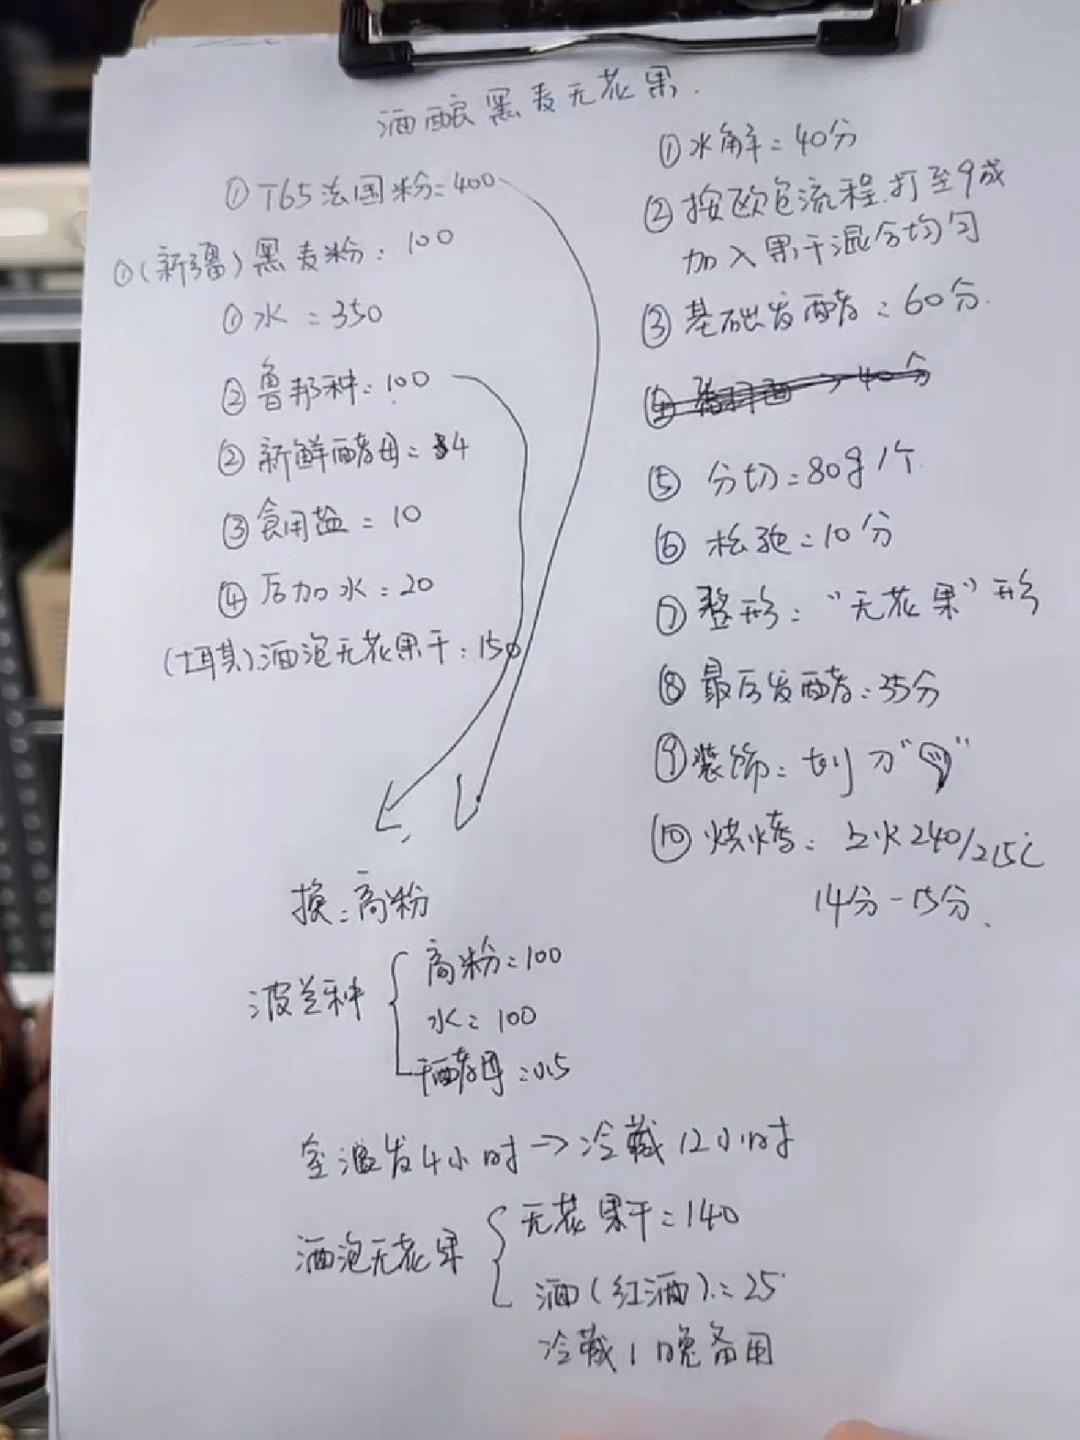 酒酿黑麦无花果.
①T65法国粉=400
①(新疆)黑麦粉:100
①水=350
②鲁邦种:100
②新鲜酵母=4
③食用盐=10
④后加水:20
(土耳其)酒泡无花果干:150
换:高粉
波兰种
高粉=100
水=100
干酵母=0.5
室温发4小时→冷藏12小时
酒泡无花果
无花果干=140
酒(红酒)=25
冷藏1晚备用
①水解=40分
②按欧包流程.打至9成
加入果干混合均匀
③基础发酵=60分.
④ 40分
⑤分切=80g1个
⑥松弛=10分
⑦整形:"无花果"形
⑧最后发酵:35分
⑨装饰:划刀" "
⑩烧烤:上火240/215℃
14分-15分.